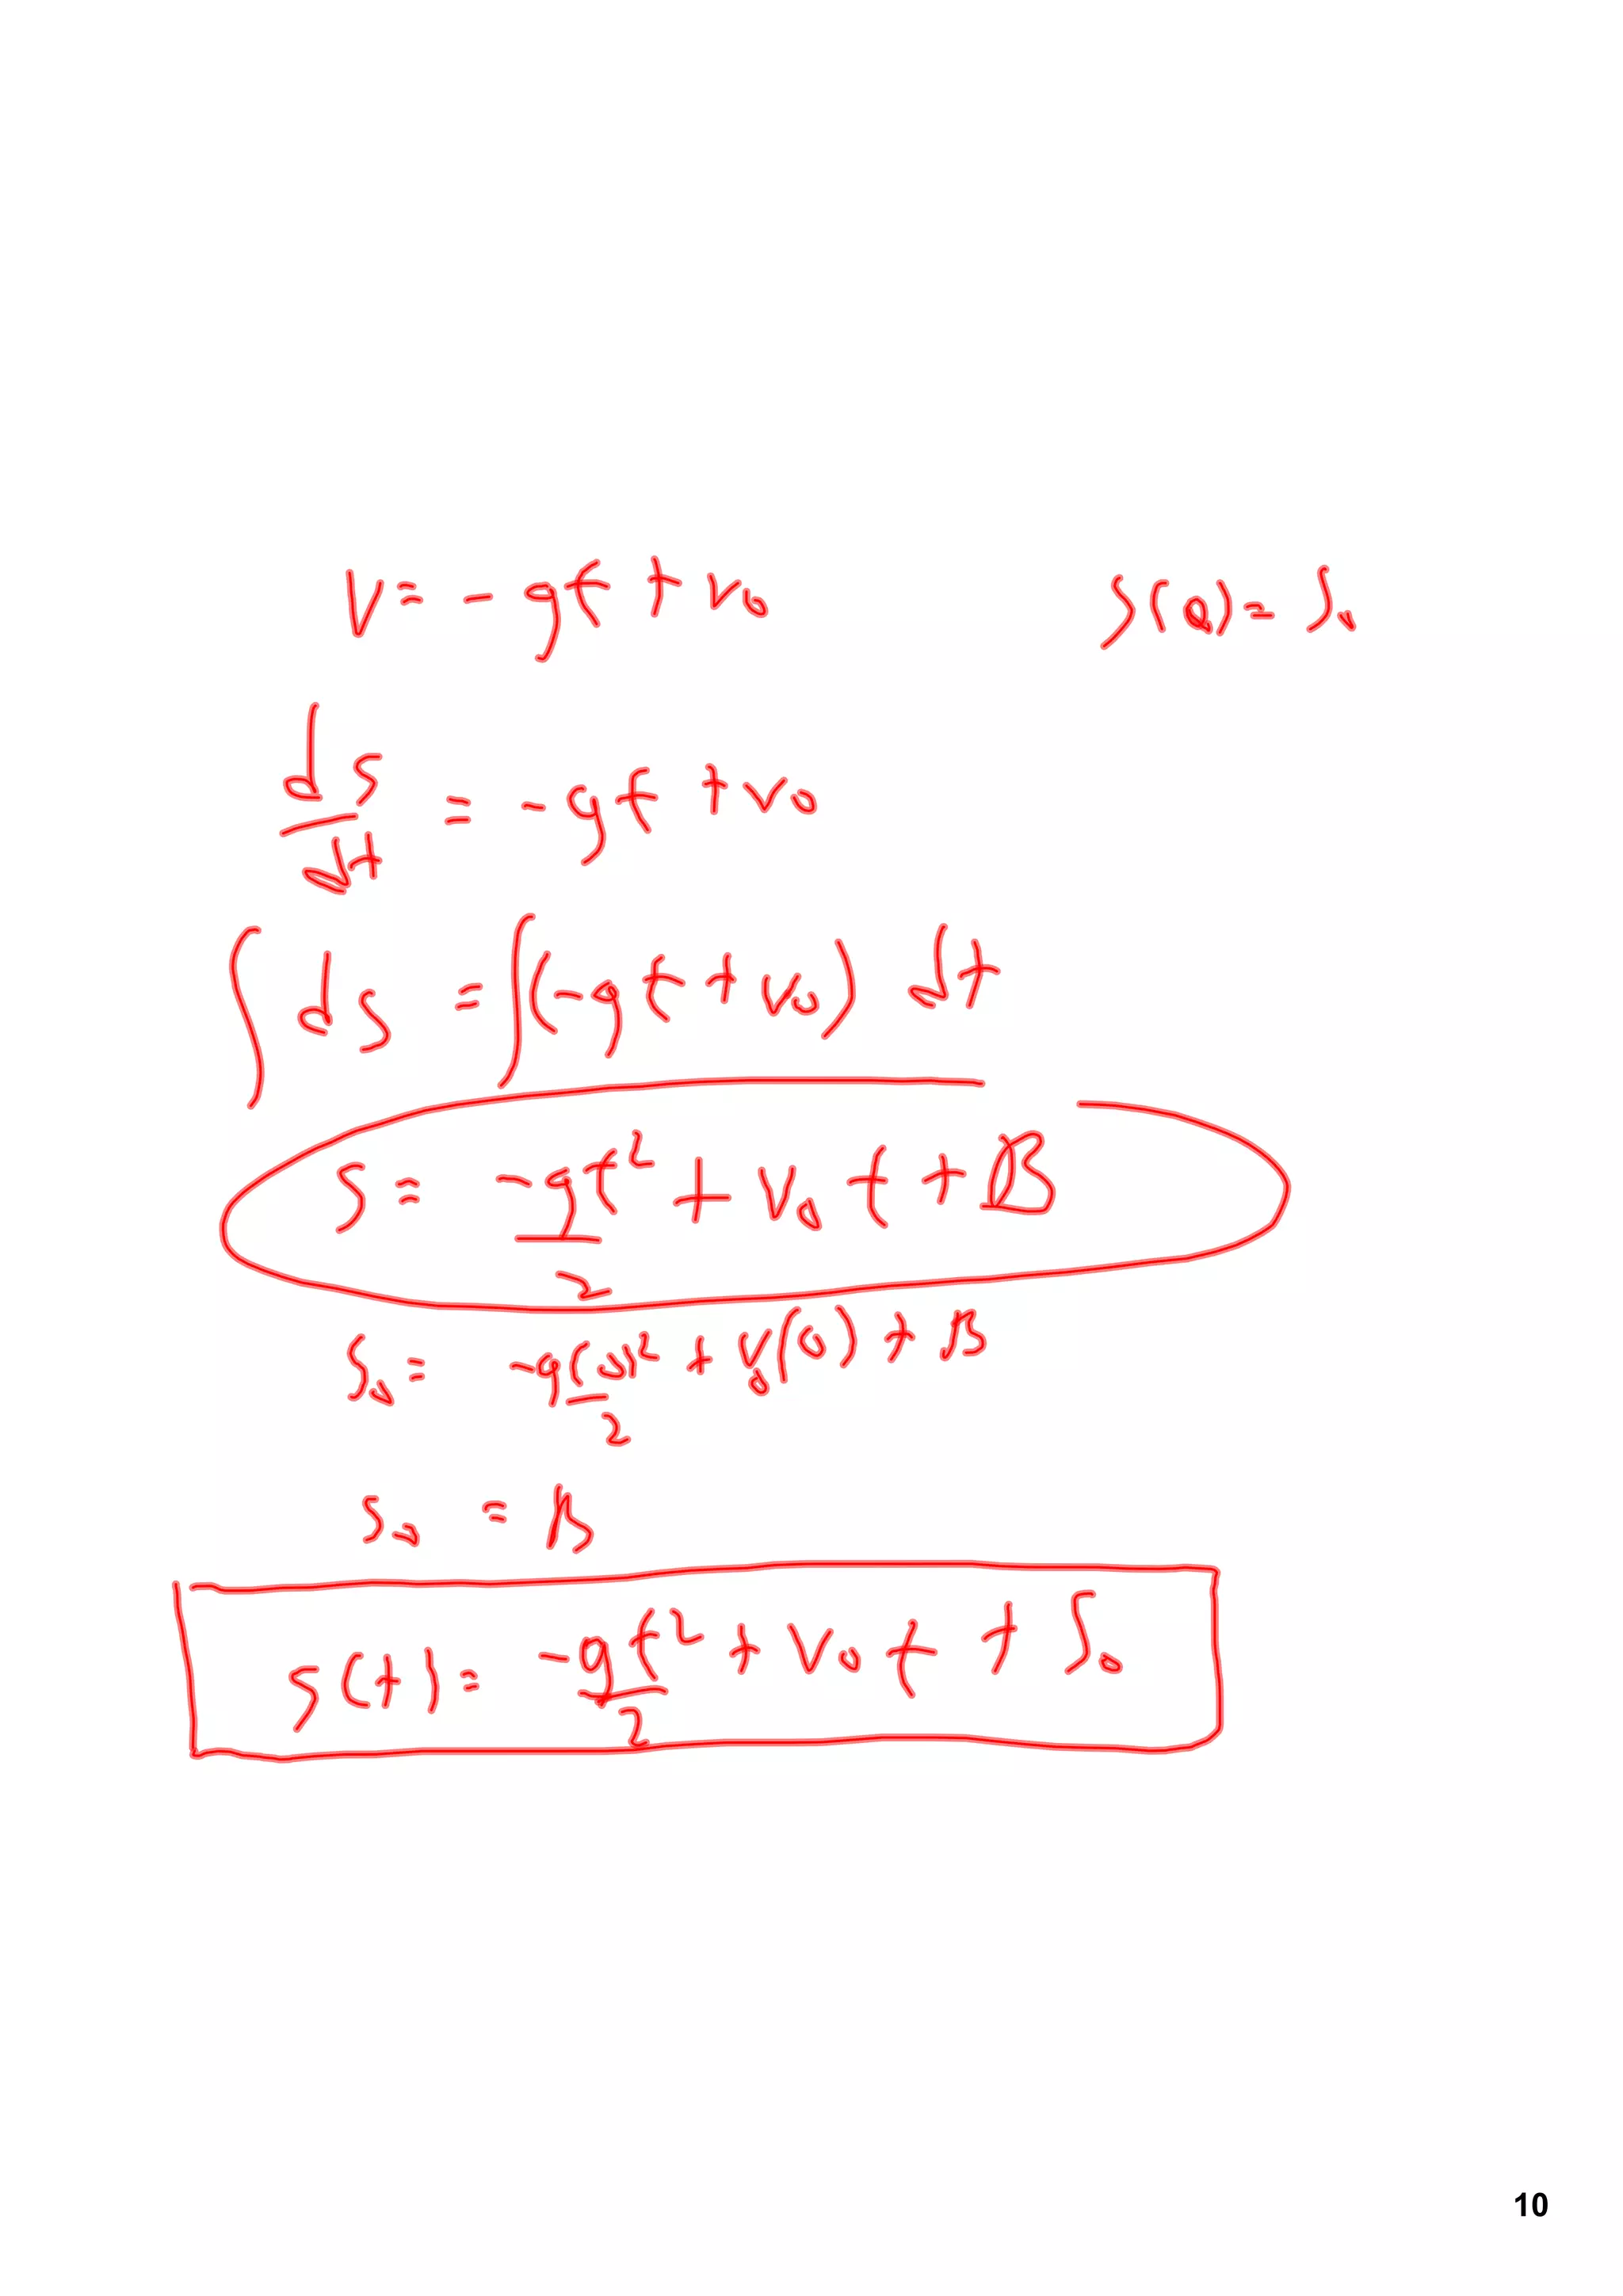 v = -gt + v₀ s(0) = s₀
ds/dt = -gt + v₀
∫ds = ∫(-gt + v₀) dt
s = -gt²/2 + v₀t + B
s₀ = -g(0)²/2 + v₀(0) + B
s₀ = B
s(t) = -gt²/2 + v₀t + s₀
10